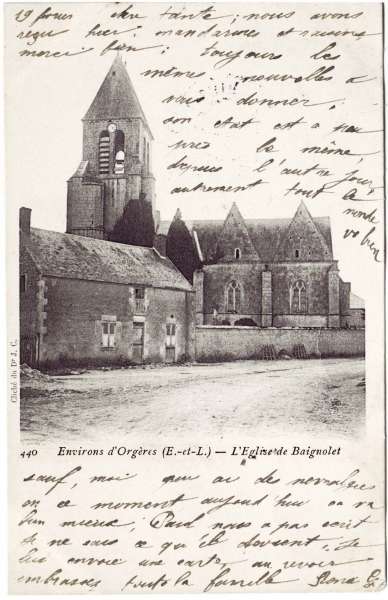 19 fev chère tante, nous avons
reçu hier mandarines et raisins
merci bien ; toujours les
mêmes nouvelles a
vous donner.
son état est a peu
près le même,
depuis l'autre jour
autrement tout le
monde
va bien
Cliché du Dr J. C.
440 Environs d'Orgères (E.-et-L.) — L'Eglise de Baignolet
sauf, moi qui ai des nevralgies
en ce moment aujourd'hui ca va
bien mieux, Paul nous a pas écrit
je ne sais ce qu'il devient. Je
lui envoie une carte, au revoir
embrasses toute la famille Rena G